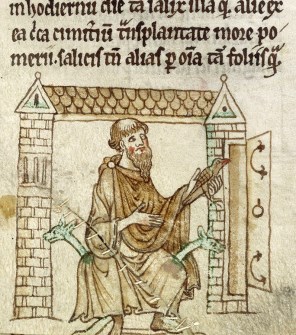 inhodiernū diē tā salix illa q̃ᷓ alie ex
ea c̄ca cimit̄iū t̃nsplantate more po
merii. salicis tñ alias ꝑ oīa tā foliis q̃ᷓ